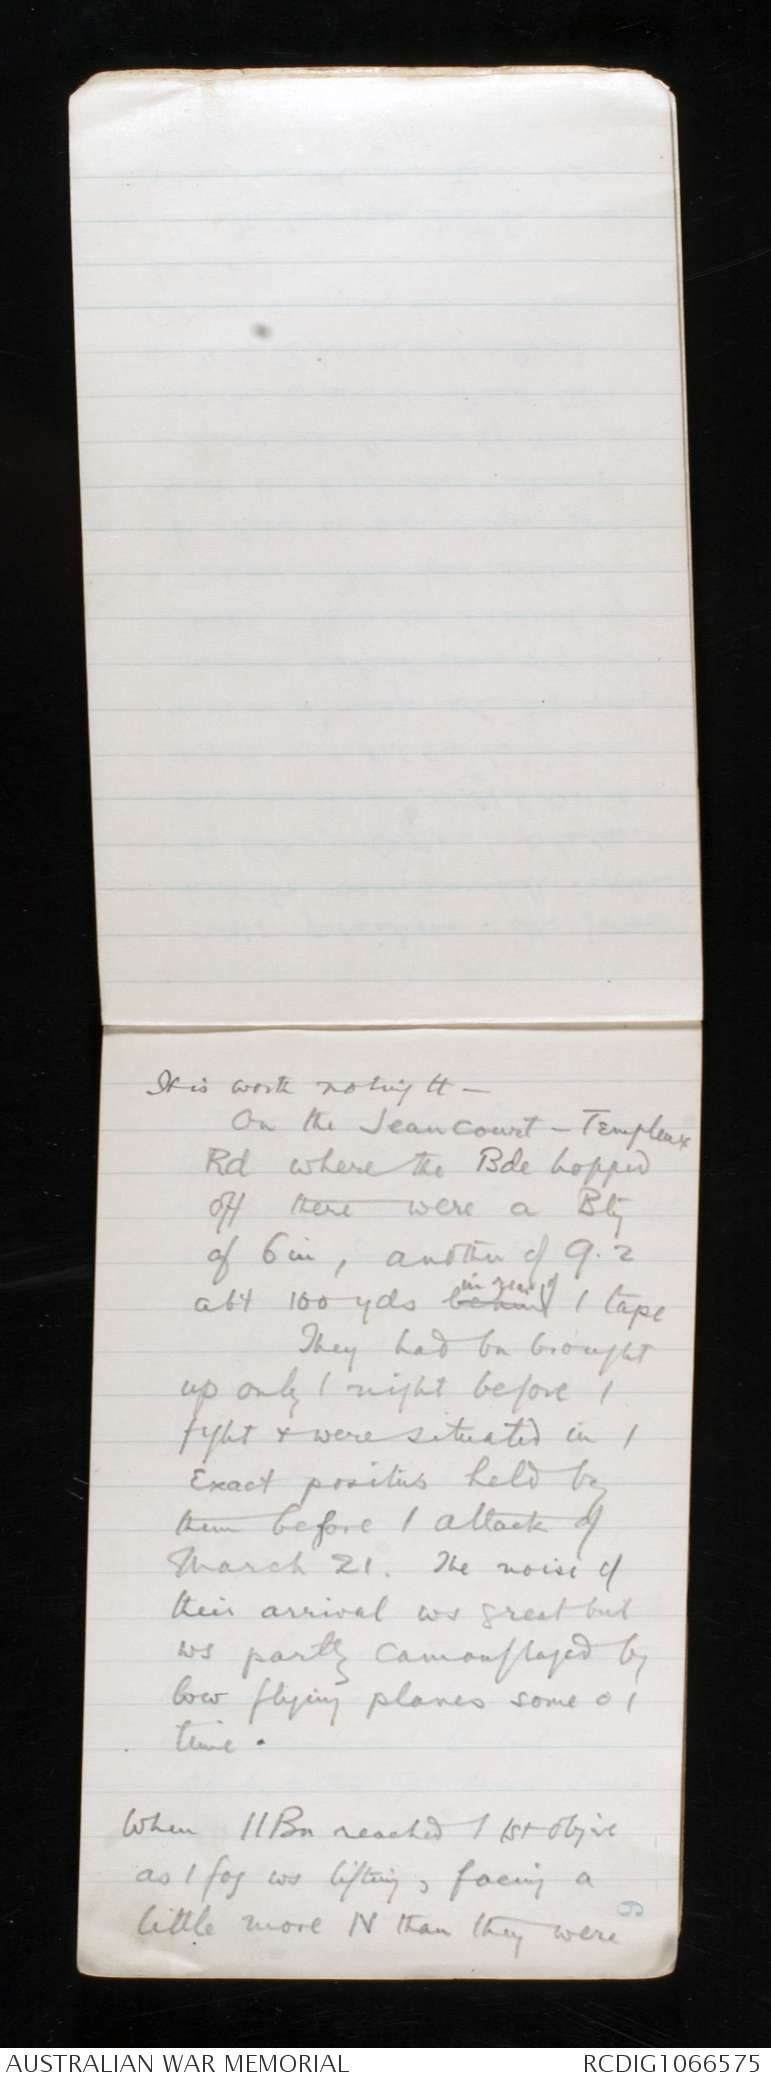 It is worth noting tt –
On the Jeancourt – Templeux
Rd where the Bde hopped
off there were a Bty
of 6 in, another of 9.2
abt 100 yds behind in rear of / tape
They had bn brought
up only / night before /
fight & were situated in /
Exact positns held by
them before / attack of
March 21. The noise of
their arrival ws great but
ws partly camouflaged by
low flying planes some o /
time.
When 11Bn reached / 1st objve
as / fog ws lifting, facing a
little more N than they were
9
AUSTRALIAN WAR MEMORIAL
RCDIG1066575